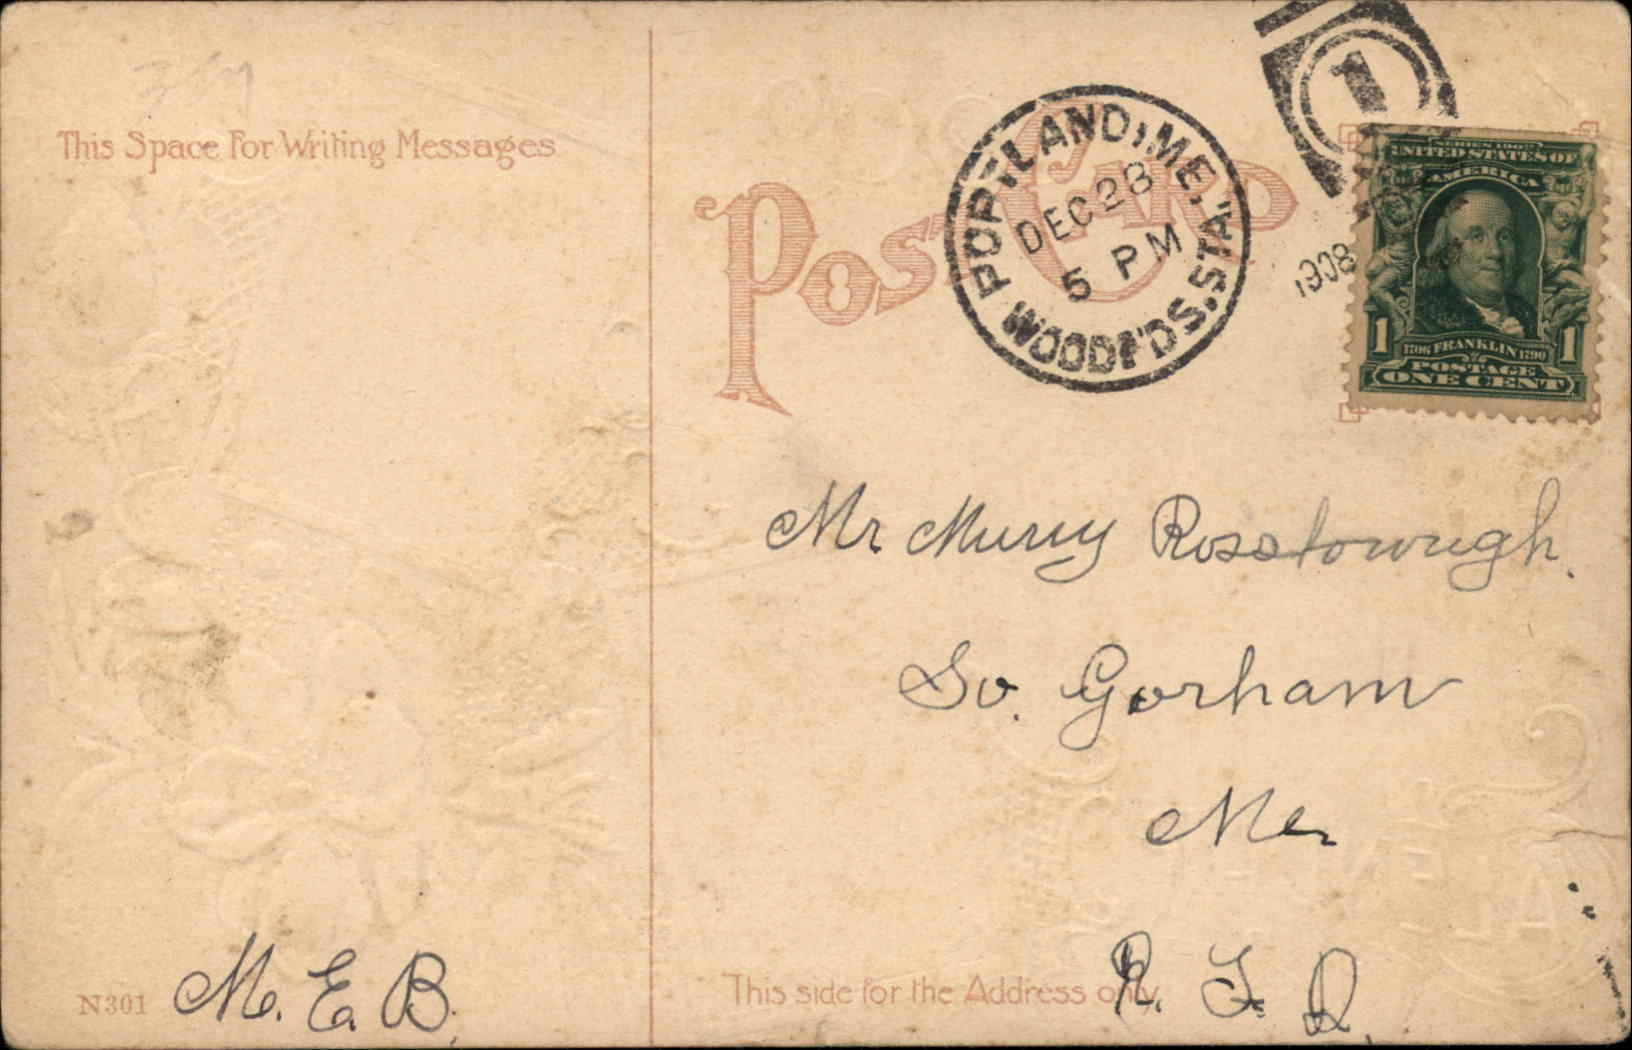 This Space For Writing Messages
POST CARD
PORTLAND, ME.
WOODF'DS. STA.
DEC 28
5 PM
1908
1
SERIES 1902
UNITED STATES OF
AMERICA
1 1706 FRANKLIN 1790 1
POSTAGE
ONE CENT
Mr Murry Rosstowugh.
So. Gorham
Me
R. F. D.
This side for the Address only.
M. E. B.
N301